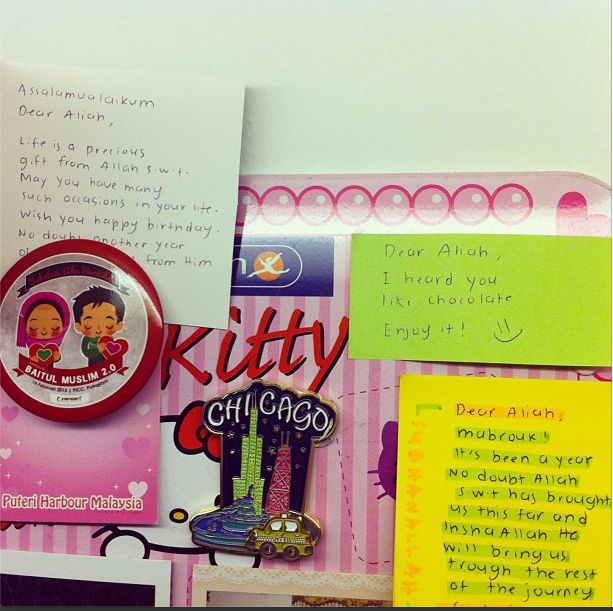 Assalamualaikum
Dear Aliah,
Life is a precious
gift from Allah s.w.t.
May you have many
such occasions in your life.
Wish you happy birthday.
No doubt another year
from Him
BAITUL MUSLIM 2.0
Puteri Harbour Malaysia
Kitty
CHICAGO
Dear Aliah,
I heard you
like chocolate
Enjoy it!
Dear Aliah!
mabrouk!
It's been a year
No doubt Allah
s.w.t has brought
us this far and
InshaAllah He
will bring us
trough the rest
of the journey